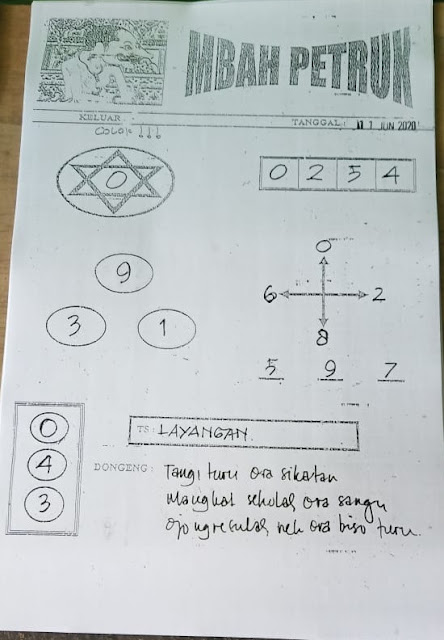 MBAH PETRUK
KELUAR :
TANGGAL : 11 JUN 2020
COLOK !!!
0
0 2 5 4
9
3 1
0
6 2
8
5 9 7
0
4
3
TS : LAYANGAN
DONGENG : Tangi turu ora sikatan
Mangkat sekolah ora sangu
Ojo ngresulah neh ora biso turu.